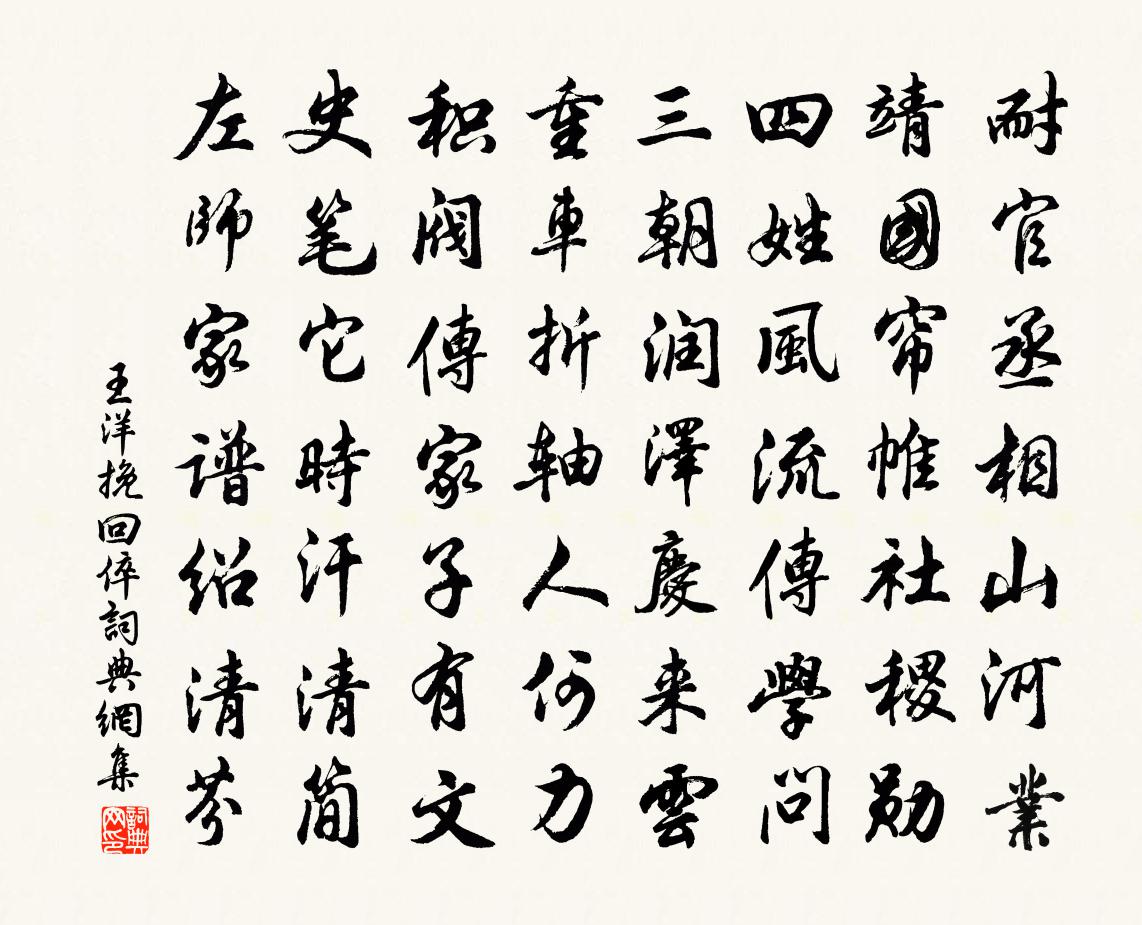 耐官丞相山河業
靖國帘帷社稷勋
四姓風流傳學問
三朝润澤慶来雲
重車折轴人何力
积阀傳家子有文
史笔它時汗清簡
左師家谱绍清芬
王洋挽回倅詞典網集
詞典网印